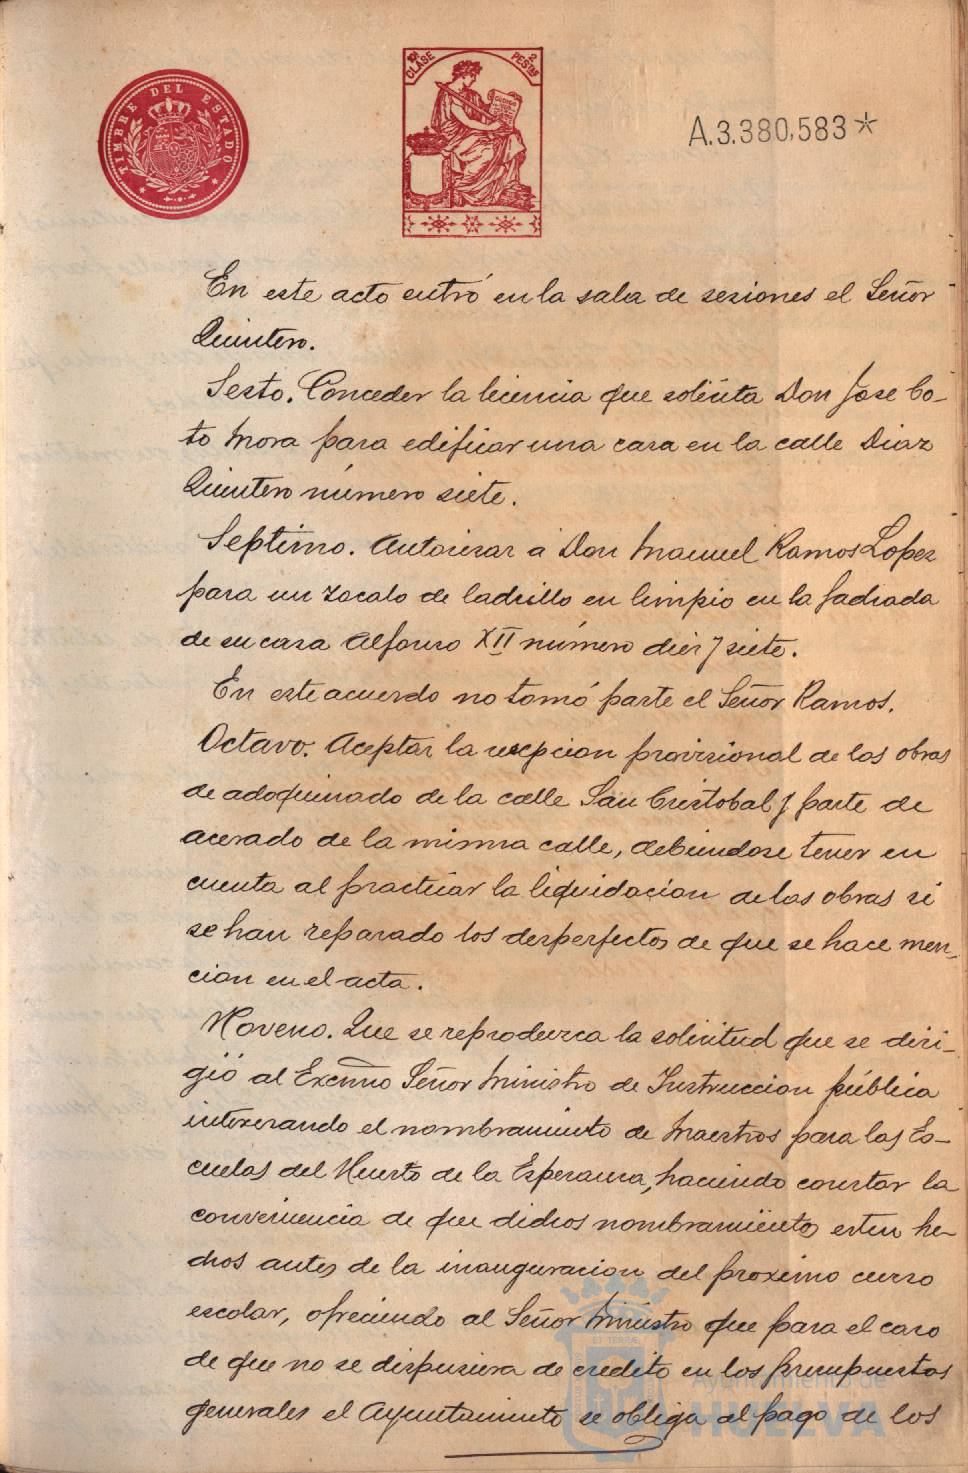 TIMBRE DEL ESTADO
10ª CLASE 2 PESTAS
CODIGO
A.3.380,583*
En este acto entró en la sala de sesiones el Señor
Quintero.
Sesto. Conceder la licencia que solicita Don Jose Co-
to Mora para edificar una casa en la calle Diaz
Quintero número siete.
Septimo. Autorizar a Don Manuel Ramos Lopez
para un zocalo de ladrillo en limpio en la fachada
de su casa Alfonso XII número diez y siete.
En este acuerdo no tomó parte el Señor Ramos.
Octavo. Aceptar la recepcion provisional de las obras
de adoquinado de la calle San Cristobal y parte de
acerado de la misma calle, debiendose tener en
cuenta al practicar la liquidacion de las obras si
se han reparado los desperfectos de que se hace men-
cion en el acta.
Noveno. Que se reproduzca la solicitud que se diri-
gió al Excmo Señor Ministro de Instruccion pública
interesando el nombramiento de Maestros para las Es-
cuelas del Huerto de la Esperanza, haciendo constar la
conveniencia de que dichos nombramientos esten he-
chos antes de la inauguracion del proximo curso
escolar, ofreciendo al Señor Ministro que para el caso
de que no se dispusiera de credito en los presupuestos
generales el Ayuntamiento se obliga al pago de los
Ayuntamiento de
HUELVA